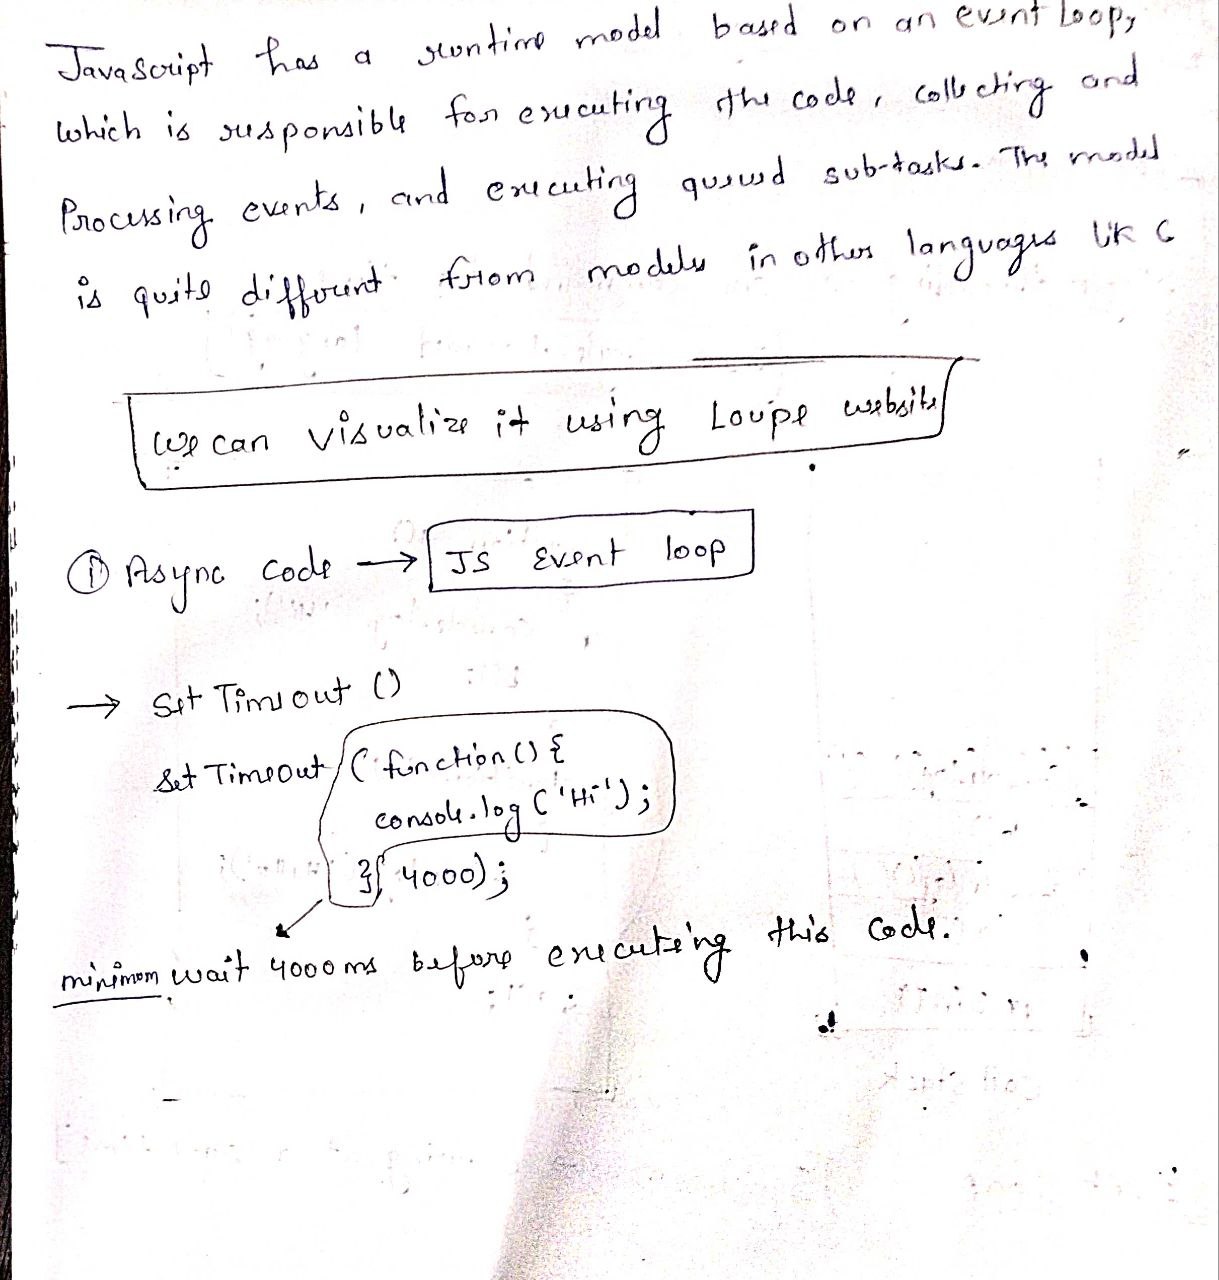 JavaScript has a runtime model based on an event loop,
which is responsible for executing the code, collecting and
Processing events, and executing queued sub-tasks. The model
is quite different from models in other languages like C
we can visualize it using Loupe website
① Async code → JS Event loop
→ Set Timeout ()
Set Timeout (function() {
console.log ('Hi');
}, 4000);
minimum wait 4000 ms before executeing this code.